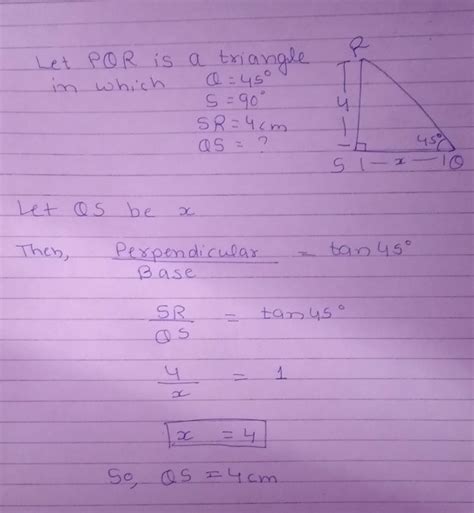 Let PQR is a triangle
in which Q = 45°
S = 90°
SR = 4cm
QS = ?
R
4
45°
S x Q
Let QS be x
Then, Perpendicular / Base = tan45°
SR / QS = tan45°
4 / x = 1
x = 4
So, QS = 4cm